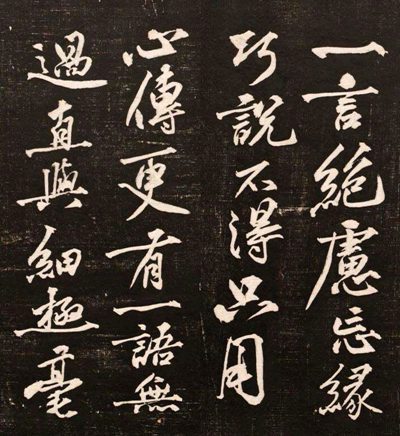 一言絕慮忘緣
巧說不得只用
心傳更有一語無
過直與細極毫